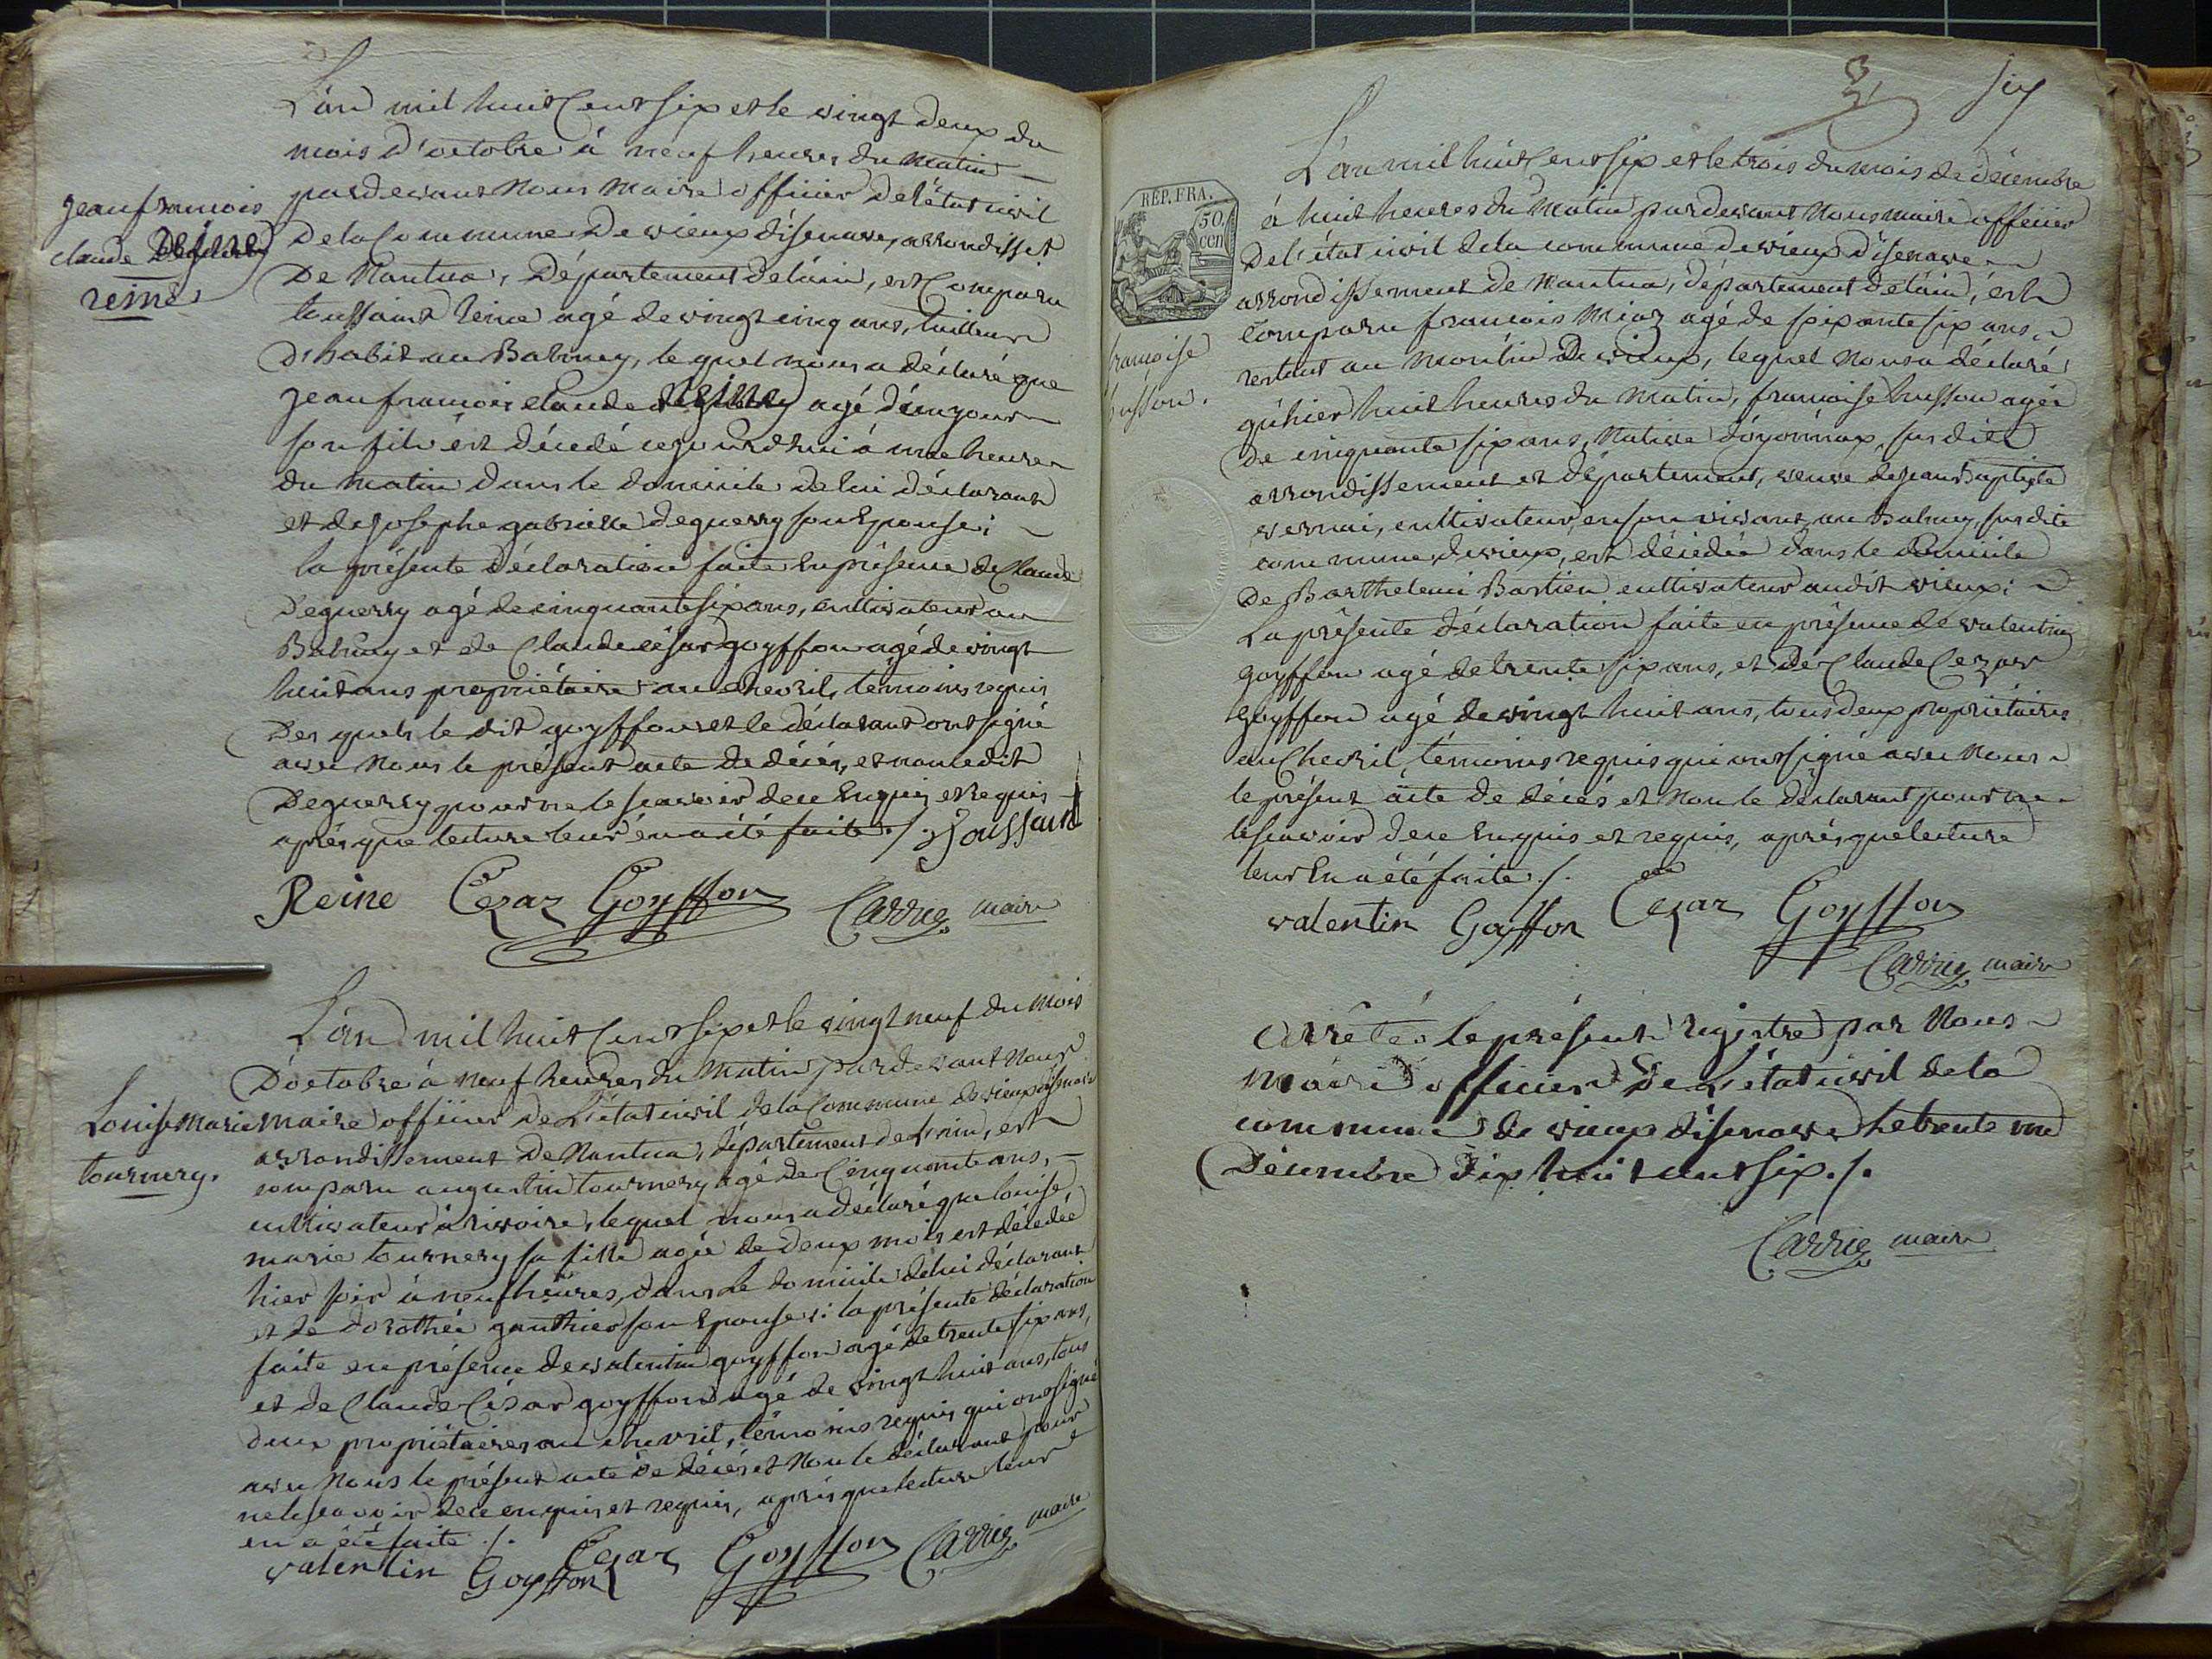 L'an mil huit cent six et le vingt deux du
mois d'octobre à neuf heures du matin
pardevant nous maire officier de l'état civil
Jean francois
claude
reine
de la commune de vieux d'isenave, arrondisst
de Nantua, département de l'ain, est comparu
toussaint reine agé de vingt cinq ans, tailleur
d'habit au Balmey, lequel nous a déclaré que
jean francois claude reine agé d'un jour
son fils est décedé cejourdhui à une heure
du matin dans le domicile de lui déclarant
et de josephe gabrielle deguerry son Epouse;
la présente déclaration faite En présence de claude
deguerry agé de cinquante six ans, cultivateur au
Balmey et de Claude césar goyffon agé de vingt
huit ans propriétaire au chevril, témoins requis
des quels le dit goyffon et le déclarant ont signé
avec nous le présent acte de décés, et non ledit
Deguerry pour ne le scavoir de ce Enquis et requis
aprés que lecture leur en a été faite ./. Toussaint
Reine Cezar Goyffon Carrier maire
L'an mil huit cent six et le vingt neuf du mois
d'octobre à neuf heures du matin pardevant nous
Louise Marie
tournery.
maire officier de L'état civil de la Commune de vieux d'isenave
arrondissement de Nantua, département de L'ain, est
comparu augustin tournery agé de Cinquante ans,
cultivateur à rivoire, lequel nous a déclaré que louise
marie tournery sa fille agée de deux mois est décedée
hier soir à neuf heures, dans le domicile de lui déclarant
et de dorothée gauthier son Epouse: la présente déclaration
faite en présence de valentin goyffon agé de trente six ans,
et de Claude César goyffon agé de vingt huit ans, tous
deux propriétaires au chevril, témoins requis qui ont signé
avec nous le présent acte de décés et non le déclarant pour
ne le scavoir de ce enquis et requis, aprés que lecture leur
en a été faite ./.
valentin Goyffon Cezar Goyffon Carrier maire
L'an mil huit cent six et le trois du mois de décembre
RÉP. FRA.
50
cen
à huit heures du matin pardevant nous maire officier
de l'état civil de la commune de vieux d'isenave
arrondissement de Nantua, département de l'ain, est
comparu francois Miaz agé de soixante six ans,
restant au moulin de vieux, lequel nous a déclaré
francoise
husson.
qu'hier huit heures du matin, francoise husson agée
de cinquante six ans, native d'oyonnax, susdits
arrondissement et département, veuve de jean Baptiste
vernai, cultivateur, en son vivant, au Balmey, susdite
commune de vieux, est décedée dans le domicile
de Barthelemi Bastien cultivateur audit vieux:
La présente déclaration faite en présence de valentin
goyffon agé de trente six ans, et de Claude Cezar
goyffon agé de vingt huit ans, tous deux propriétaires
au Chevril, témoins requis qui ont signé avec nous
le présent acte de décés et non le déclarant pour ne
le scavoir de ce Enquis et requis, aprés que lecture
leur En a été faite ./.
valentin Goyffon Cezar Goyffon
Carrier maire
Arrêté le présent registre par Nous
Maire officier de L'état civil de la
commune de vieux d'isenave le trente un
décembre dix huit cent six ./.
Carrier maire